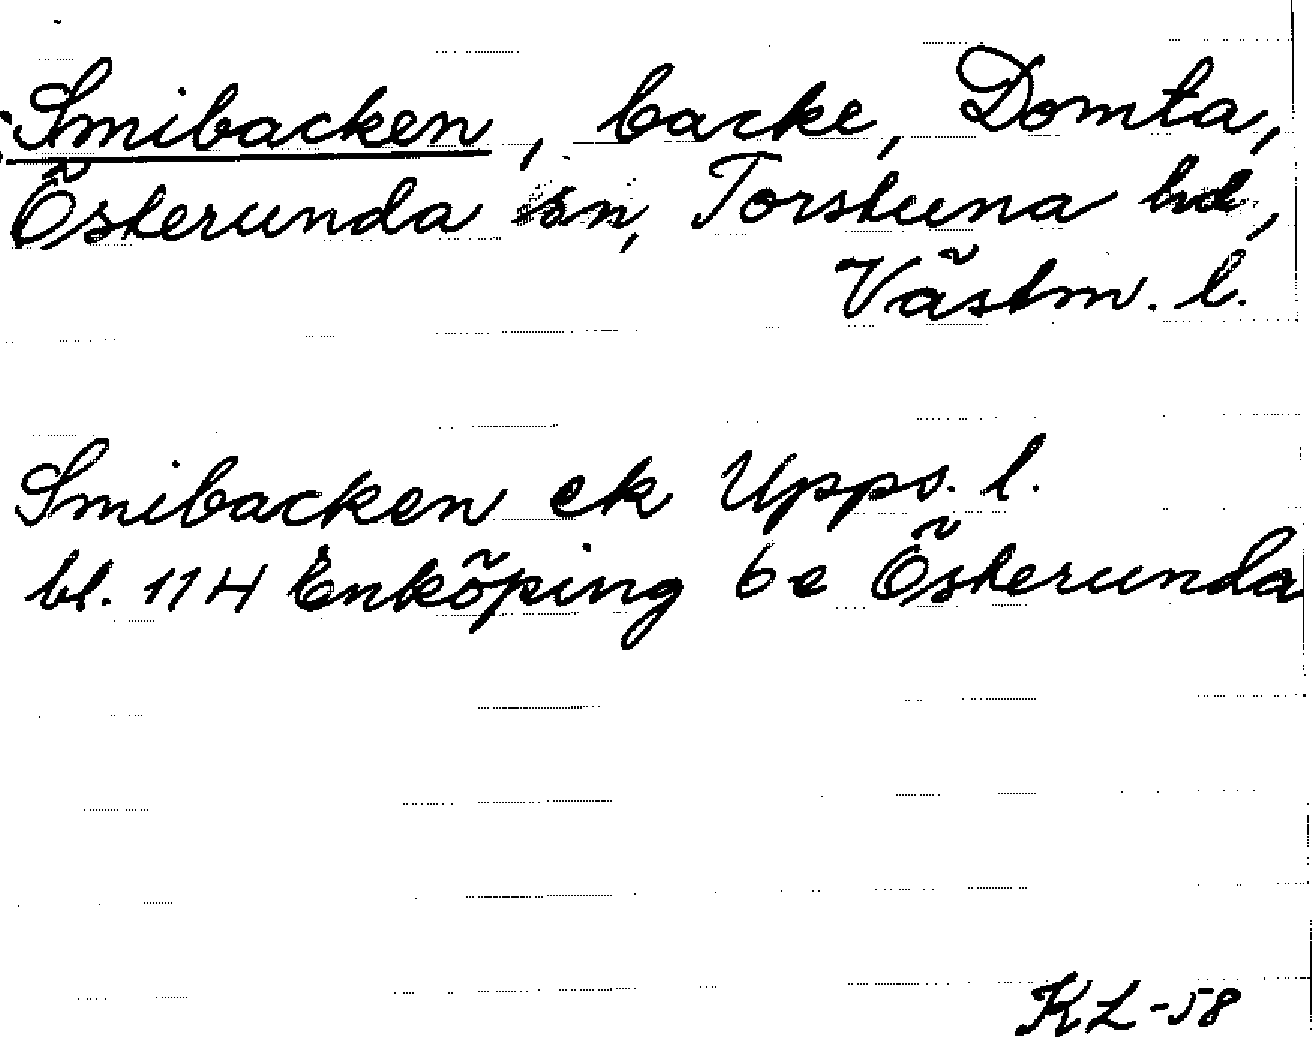 Smibacken, backe, Domta,
Österunda sn, Torstuna hd,
Västm. l.
Smibacken ek Upps. l.
bl. 114 Enköping 6e Österunda
KL-58